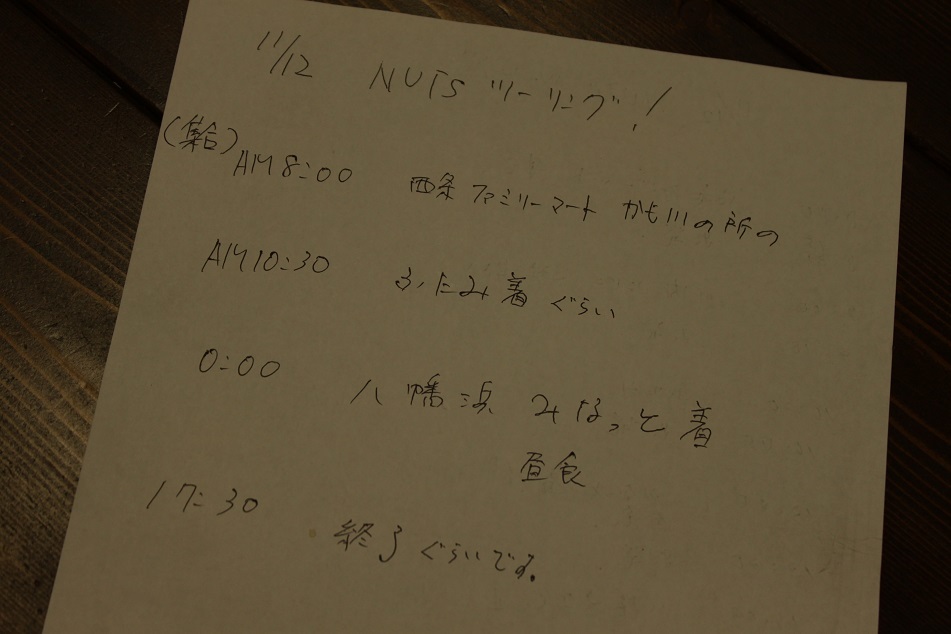 11/12 NUTS ツーリング!
(集合) AM8:00 西条 ファミリーマート かも川の所の
AM10:30 ふたみ着 ぐらい
0:00 八幡浜 みなっと着
昼食
17:30 終了ぐらいです。